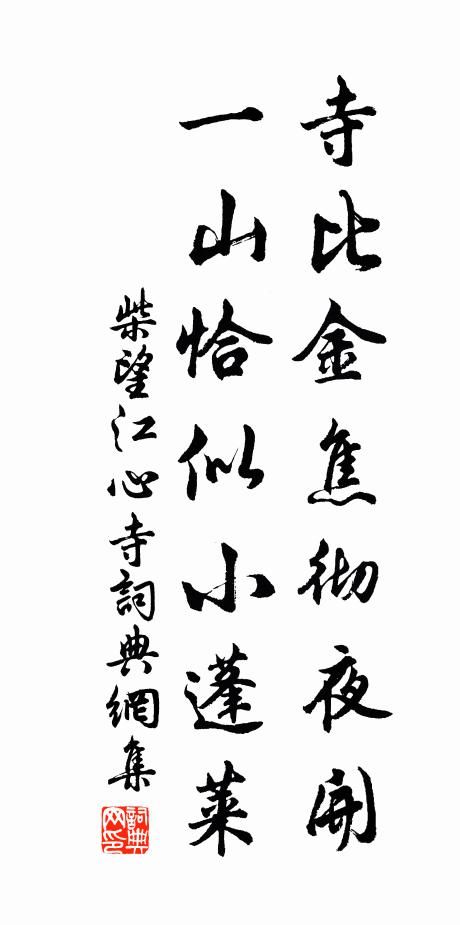 寺比金焦彻夜開
一山恰似小蓬莱
柴望江心寺詞典網集
詞典网印